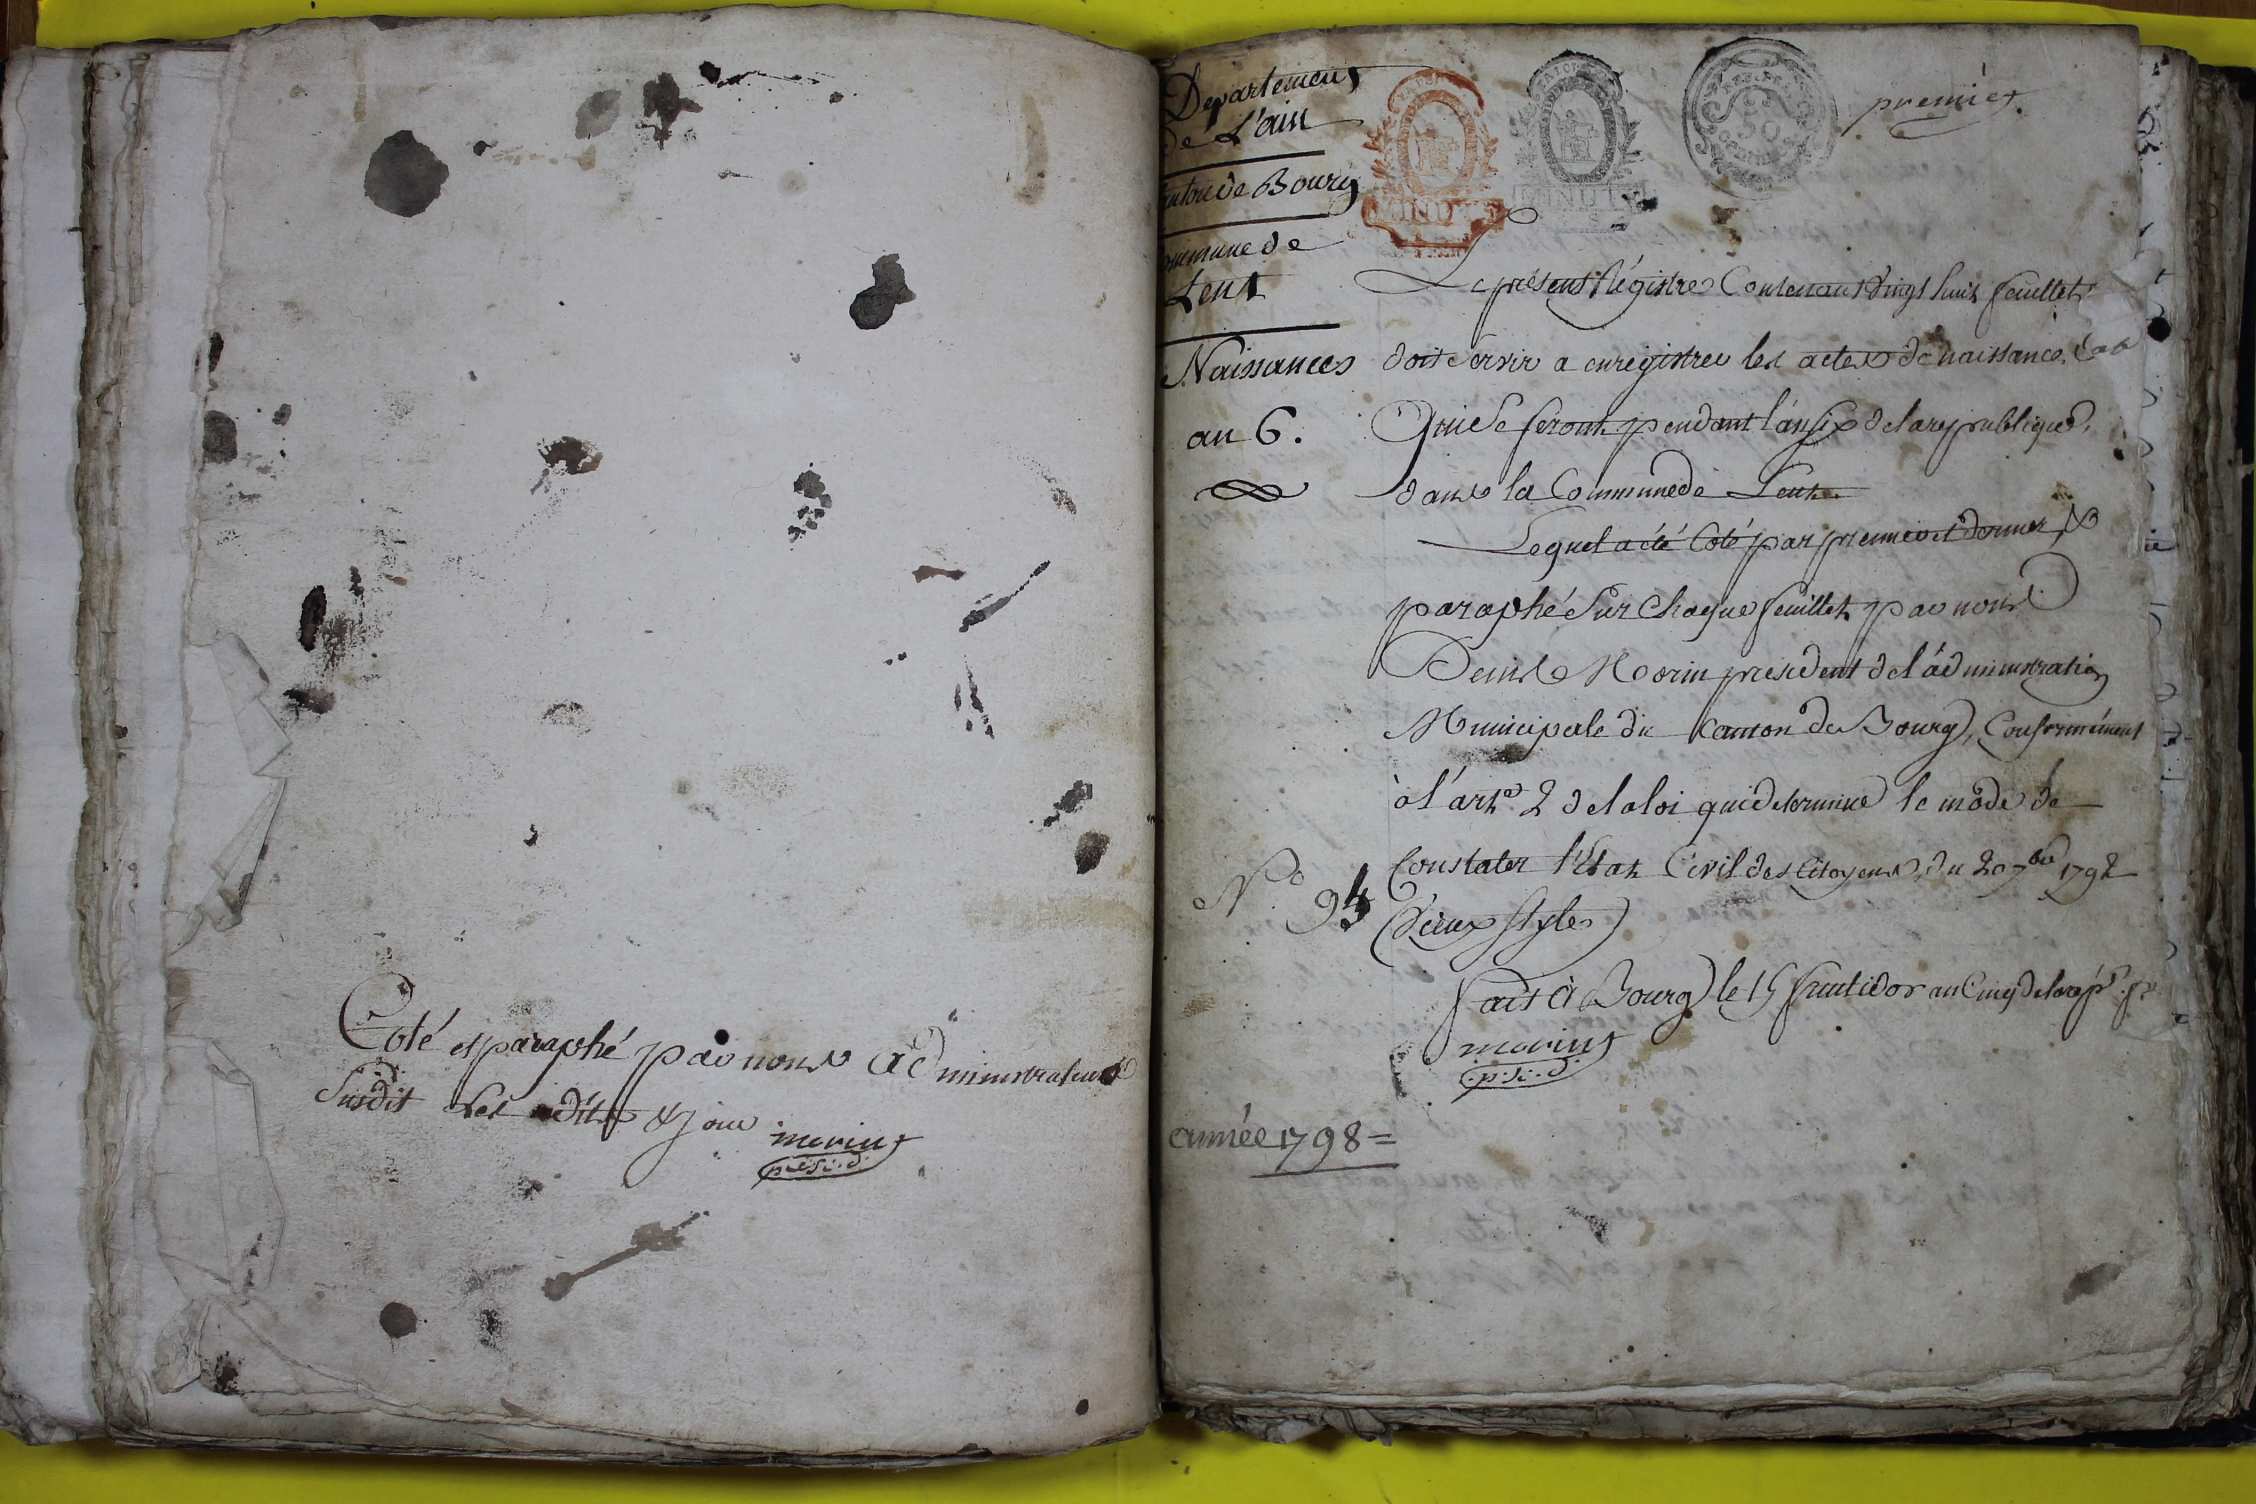 Coté et paraphé par nous administrateur
Susdit les dits & jour
morin
présid.
Departement
de L'ain
anton de Bourg
ommune de
Lent
Naissances
an 6.
N.o 94
année 1798 =
MINUTE
premier.
Le présent Régistre Contenant Vingt huit feuillets
doit Servir a enregistrer les actes de naissance
Qui Se feront pendant l'an six de la republique,
dans la Commune de Lent
Lequel a été Coté par premier et dernier &
paraphé Sur Chaque feuillet par nous
Denis Morin président de l'administration
Municipale du Canton de Bourg, Conformément
à l'arte. 2 de la loi qui determine le mode de
Constater l'Etat Civil des Citoyens, du 20 7bre 1792
(vieux style)
fait à Bourg le 15 fructidor an Cinq de la rép.
morin
présid.